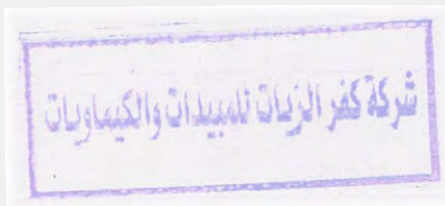 شركة كفر الزيات للمبيدات والكيماويات